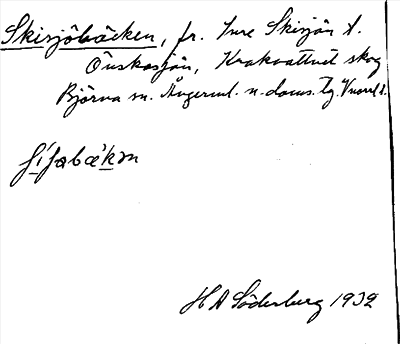 Skisjöbäcken, fr. Inre Skisjön t.
Önskasjön, Krakvattnet skog
Björna sn. Ångerml. n. doms. tg.
ſíſabæ̀kən
H A Söderberg 1932